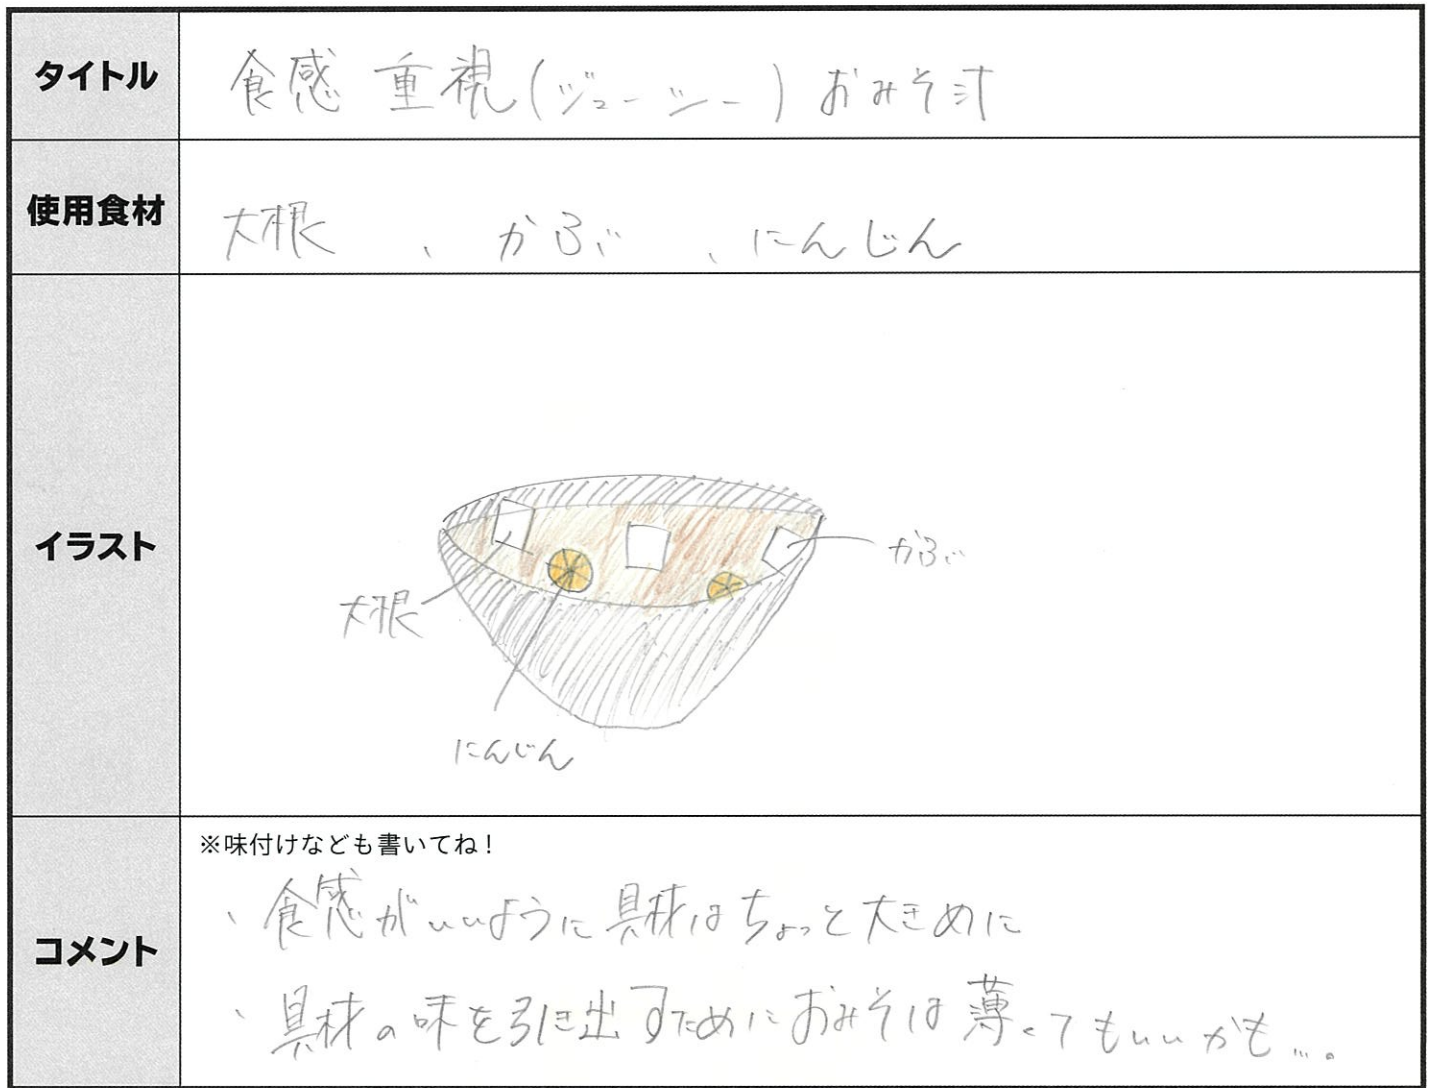 タイトル
食感 重視(ジューシー)おみそ汁
使用食材
大根、かぶ、にんじん
イラスト
かぶ
大根
にんじん
コメント
※味付けなども書いてね!
・食感がいいように具材はちょっと大きめに
・具材の味を引き出すためにおみそは薄くてもいいかも…。